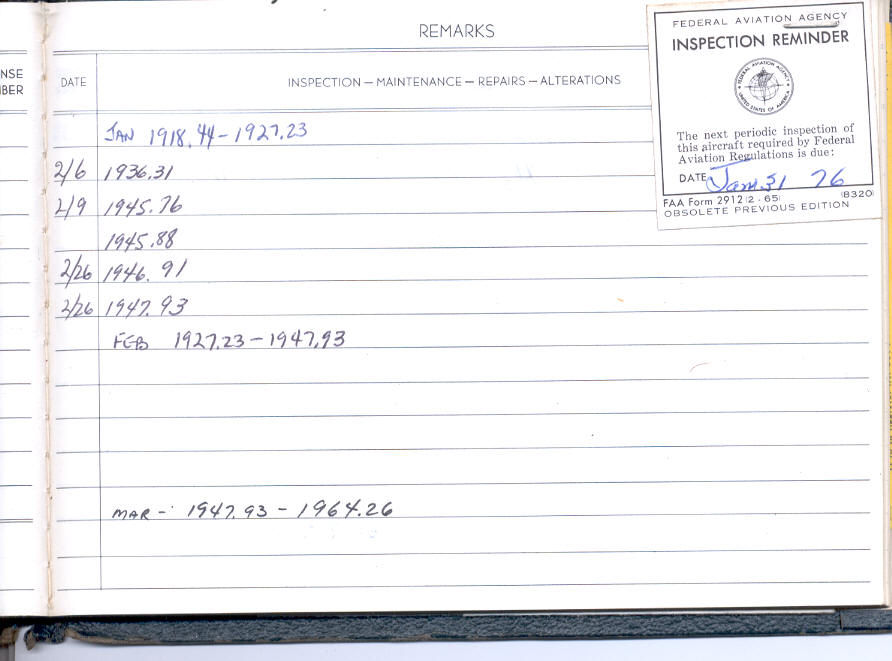 REMARKS
NSE
BER
DATE
INSPECTION — MAINTENANCE — REPAIRS — ALTERATIONS
JAN 1918.44 - 1927.23
2/6 1936.31
2/9 1945.76
1945.88
2/26 1946.91
2/26 1947.93
FEB 1927.23 - 1947.93
MAR - 1947.93 - 1964.26
FEDERAL AVIATION AGENCY
INSPECTION REMINDER
FEDERAL AVIATION AGENCY
UNITED STATES OF AMERICA
The next periodic inspection of
this aircraft required by Federal
Aviation Regulations is due:
DATE Jan 31 76
FAA Form 2912 (2-65) (8320)
OBSOLETE PREVIOUS EDITION